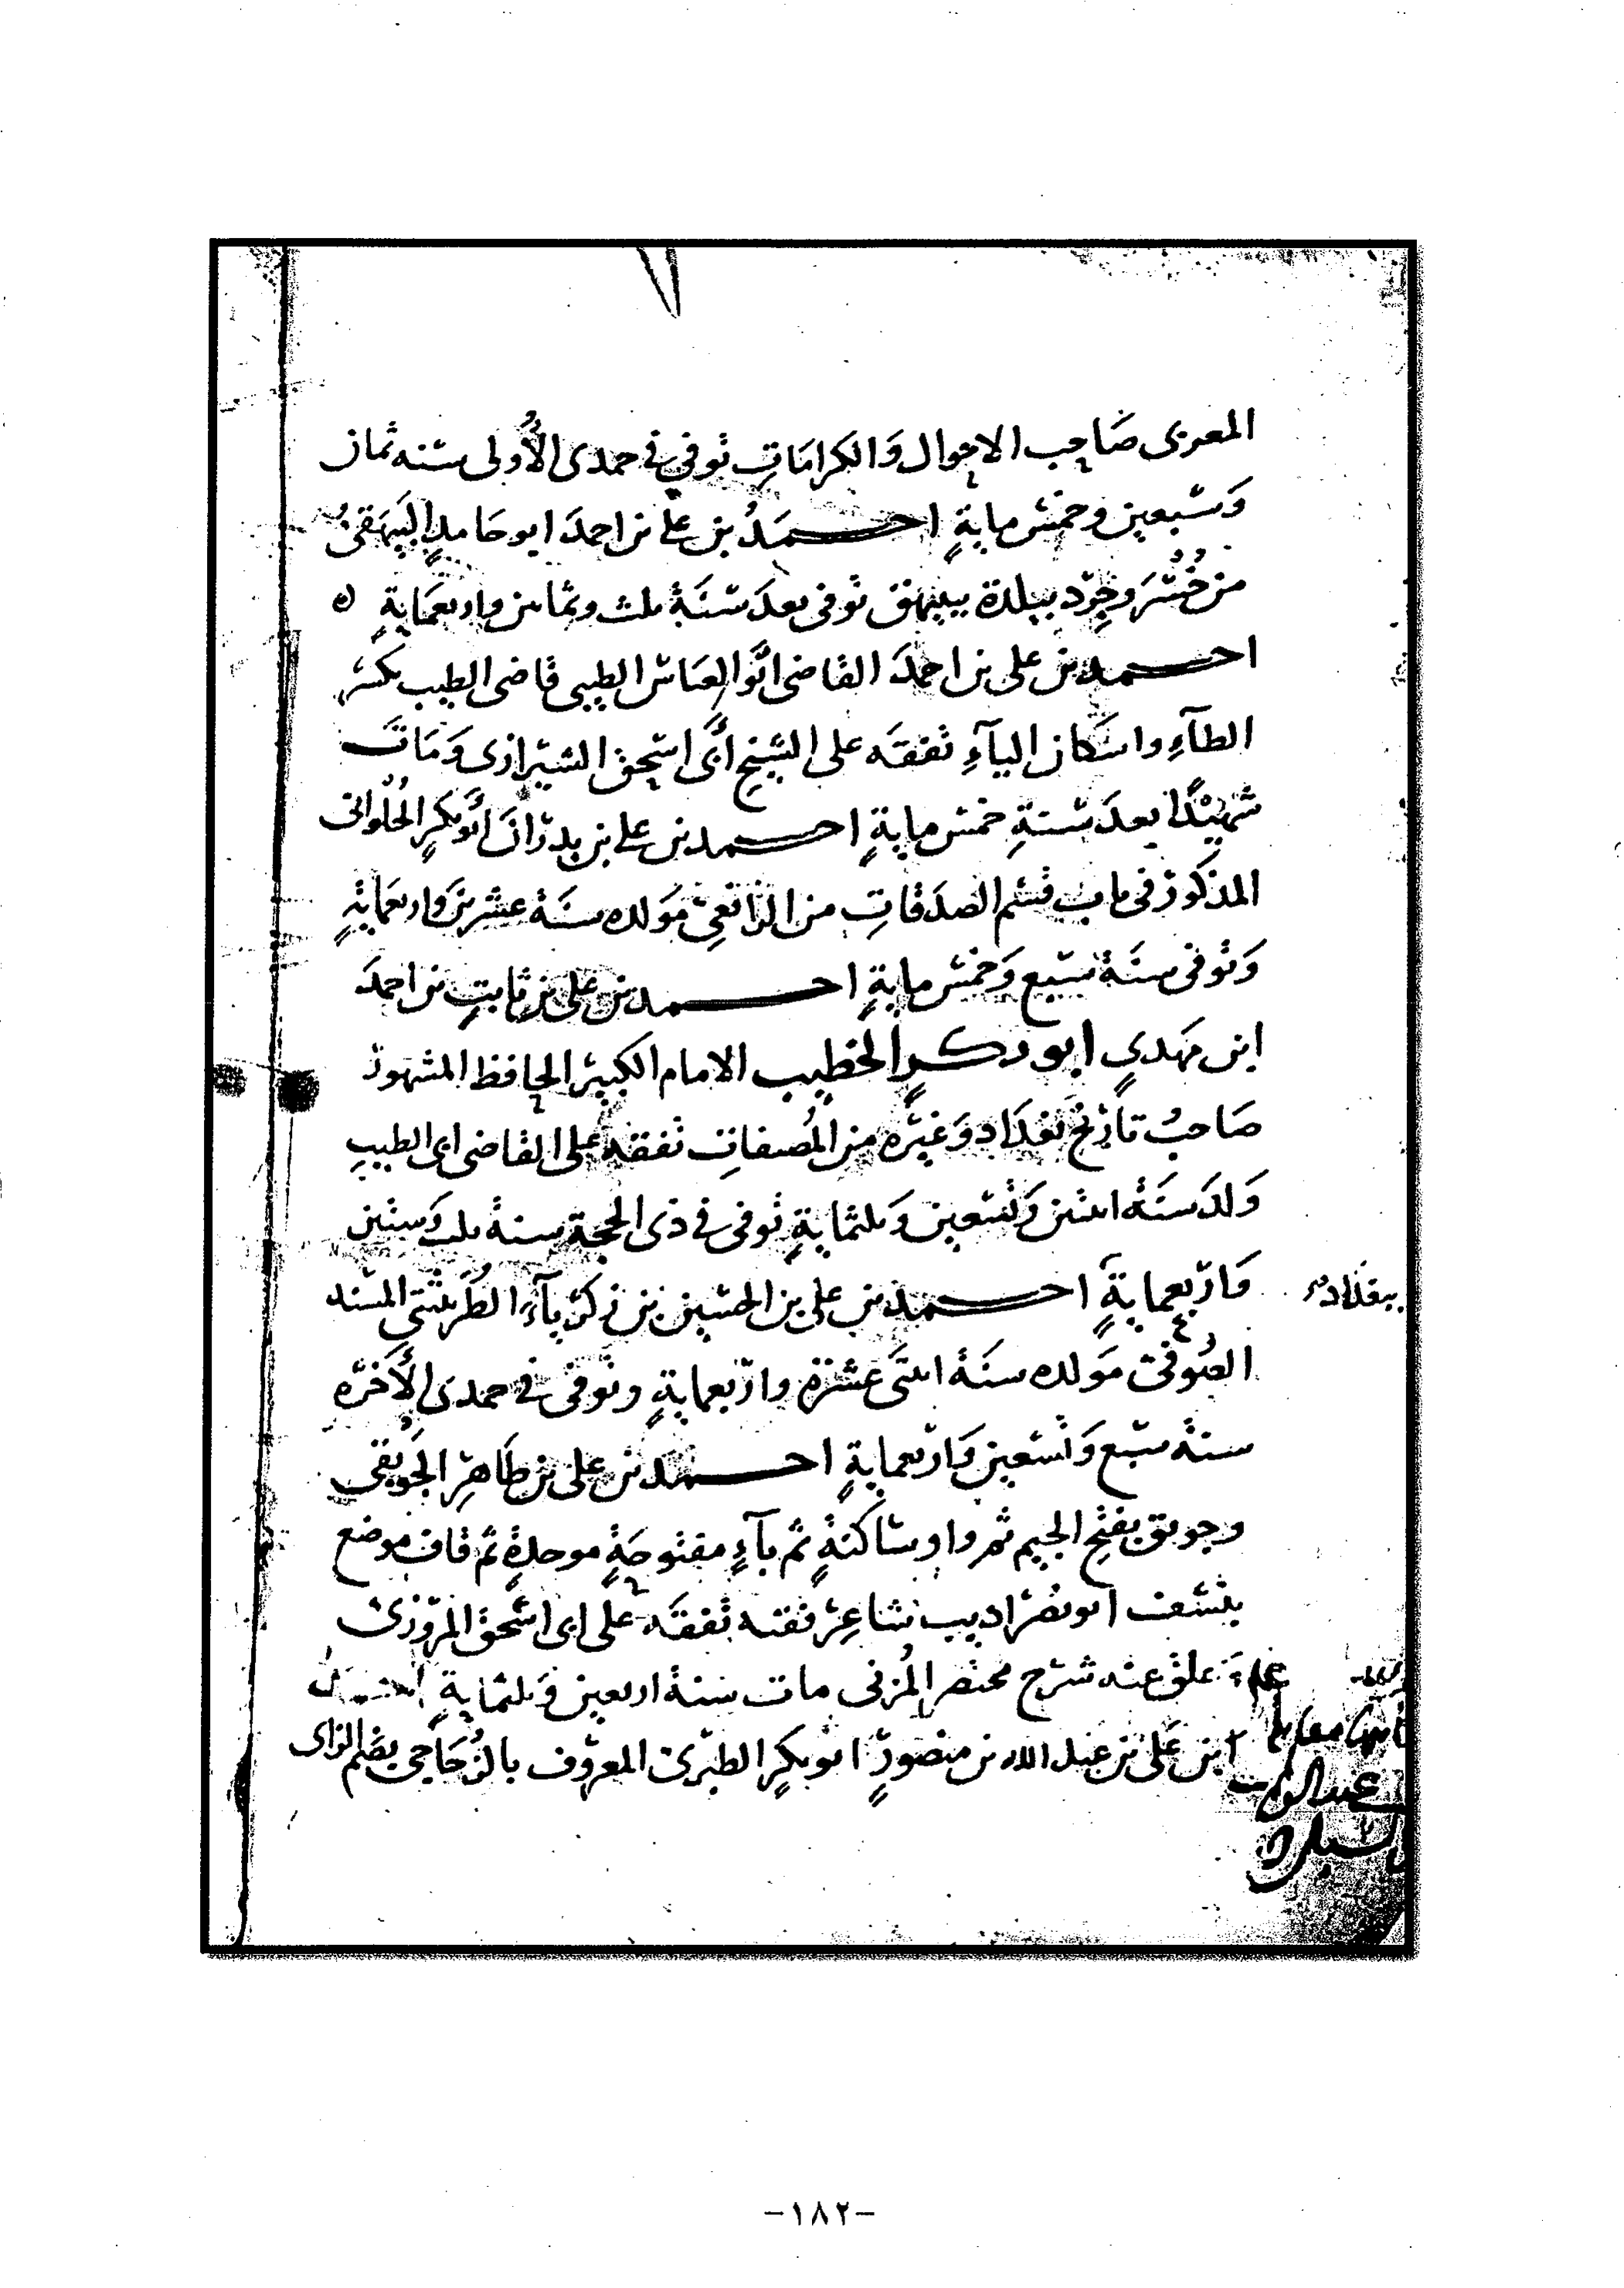 المغربى صَاحِب الاحوال وَالكرامَاتِ توفي في جمدى الأُولى سنه ثمان
وَسَبعين وخمس مايةٍ احمَدُ بن على بن احمدَ ابو حَامدٍ البَيهَقىُّ
من خُسْرَوجِرْد ببلدة ببيهق توفى بعدَ سَنَةَ ثلث وثمانين واربعمَايةٍ
احمد بن على بن احمدَ القاضى ابو العبَاس الطيبى قاضى الطيب بكسر
الطآءِ واسكان اليآءِ تفقَه على الشيخ أبى اسحق الشيرازى وَمَاتَ
شهيْدًا بعدَ سَنةِ خمس مايةٍ احمد بن على بن بدرَانَ أبو بكرٍ الحُلْوانى
المذكور فى باب قسْم الصدَقاتِ من الرافعىّ مَولده سنَة عشرين وَاربعمَايةٍ
وَتوفى سنَة سَبع وَخمس مايةٍ احمد بن على بن ثابتٍ بن احمدَ
ابن مَهدىٍ ابو بكرٍ الخطيب الامام الكبير الحافظ المشهور
صَاحبُ تاريخ بَغدَاد وَغيره من المُصنفات تفقه على القاضى ابى الطيبِ
وَلدَ سنَة اثنتين وَتسعين وَثلثمايةٍ توفى في ذى الحجة سنة ثلث وَستين
وَاربعمايةَ احمد بن على بن الحسَين بن زكريآءَ الطُرَيْثيثى المسْند
ببغدَاد
الصُوفى مَولده سنَة اثنتَى عشرَة واربعمايةٍ وتوفى في جمدى الأخرَه
سنة سَبع وَتسعين وَاربعمايةٍ احمد بن على بن طَاهِر الجَوبَقى
وجوبق بفتح الجيم ثم واوٍ سَاكنةٍ ثم بآءٍ مفتوحَةٍ موحدةٍ ثم قاف موضع
بنسَف ابو نصْر اديب شاعِر فقيه تفقَه على ابى اسحق المروَزى
علق عنه شرح مختصر المُزنى مات سنة اربعين وَثلثمايةٍ احمد
ابن عَلى بن عبد الله بن منصورٍ ابو بكرٍ الطبرى المعروف بالزُجَاجى بضَم الزاى
عبد الوهاب
السبكى
-١٨٢-